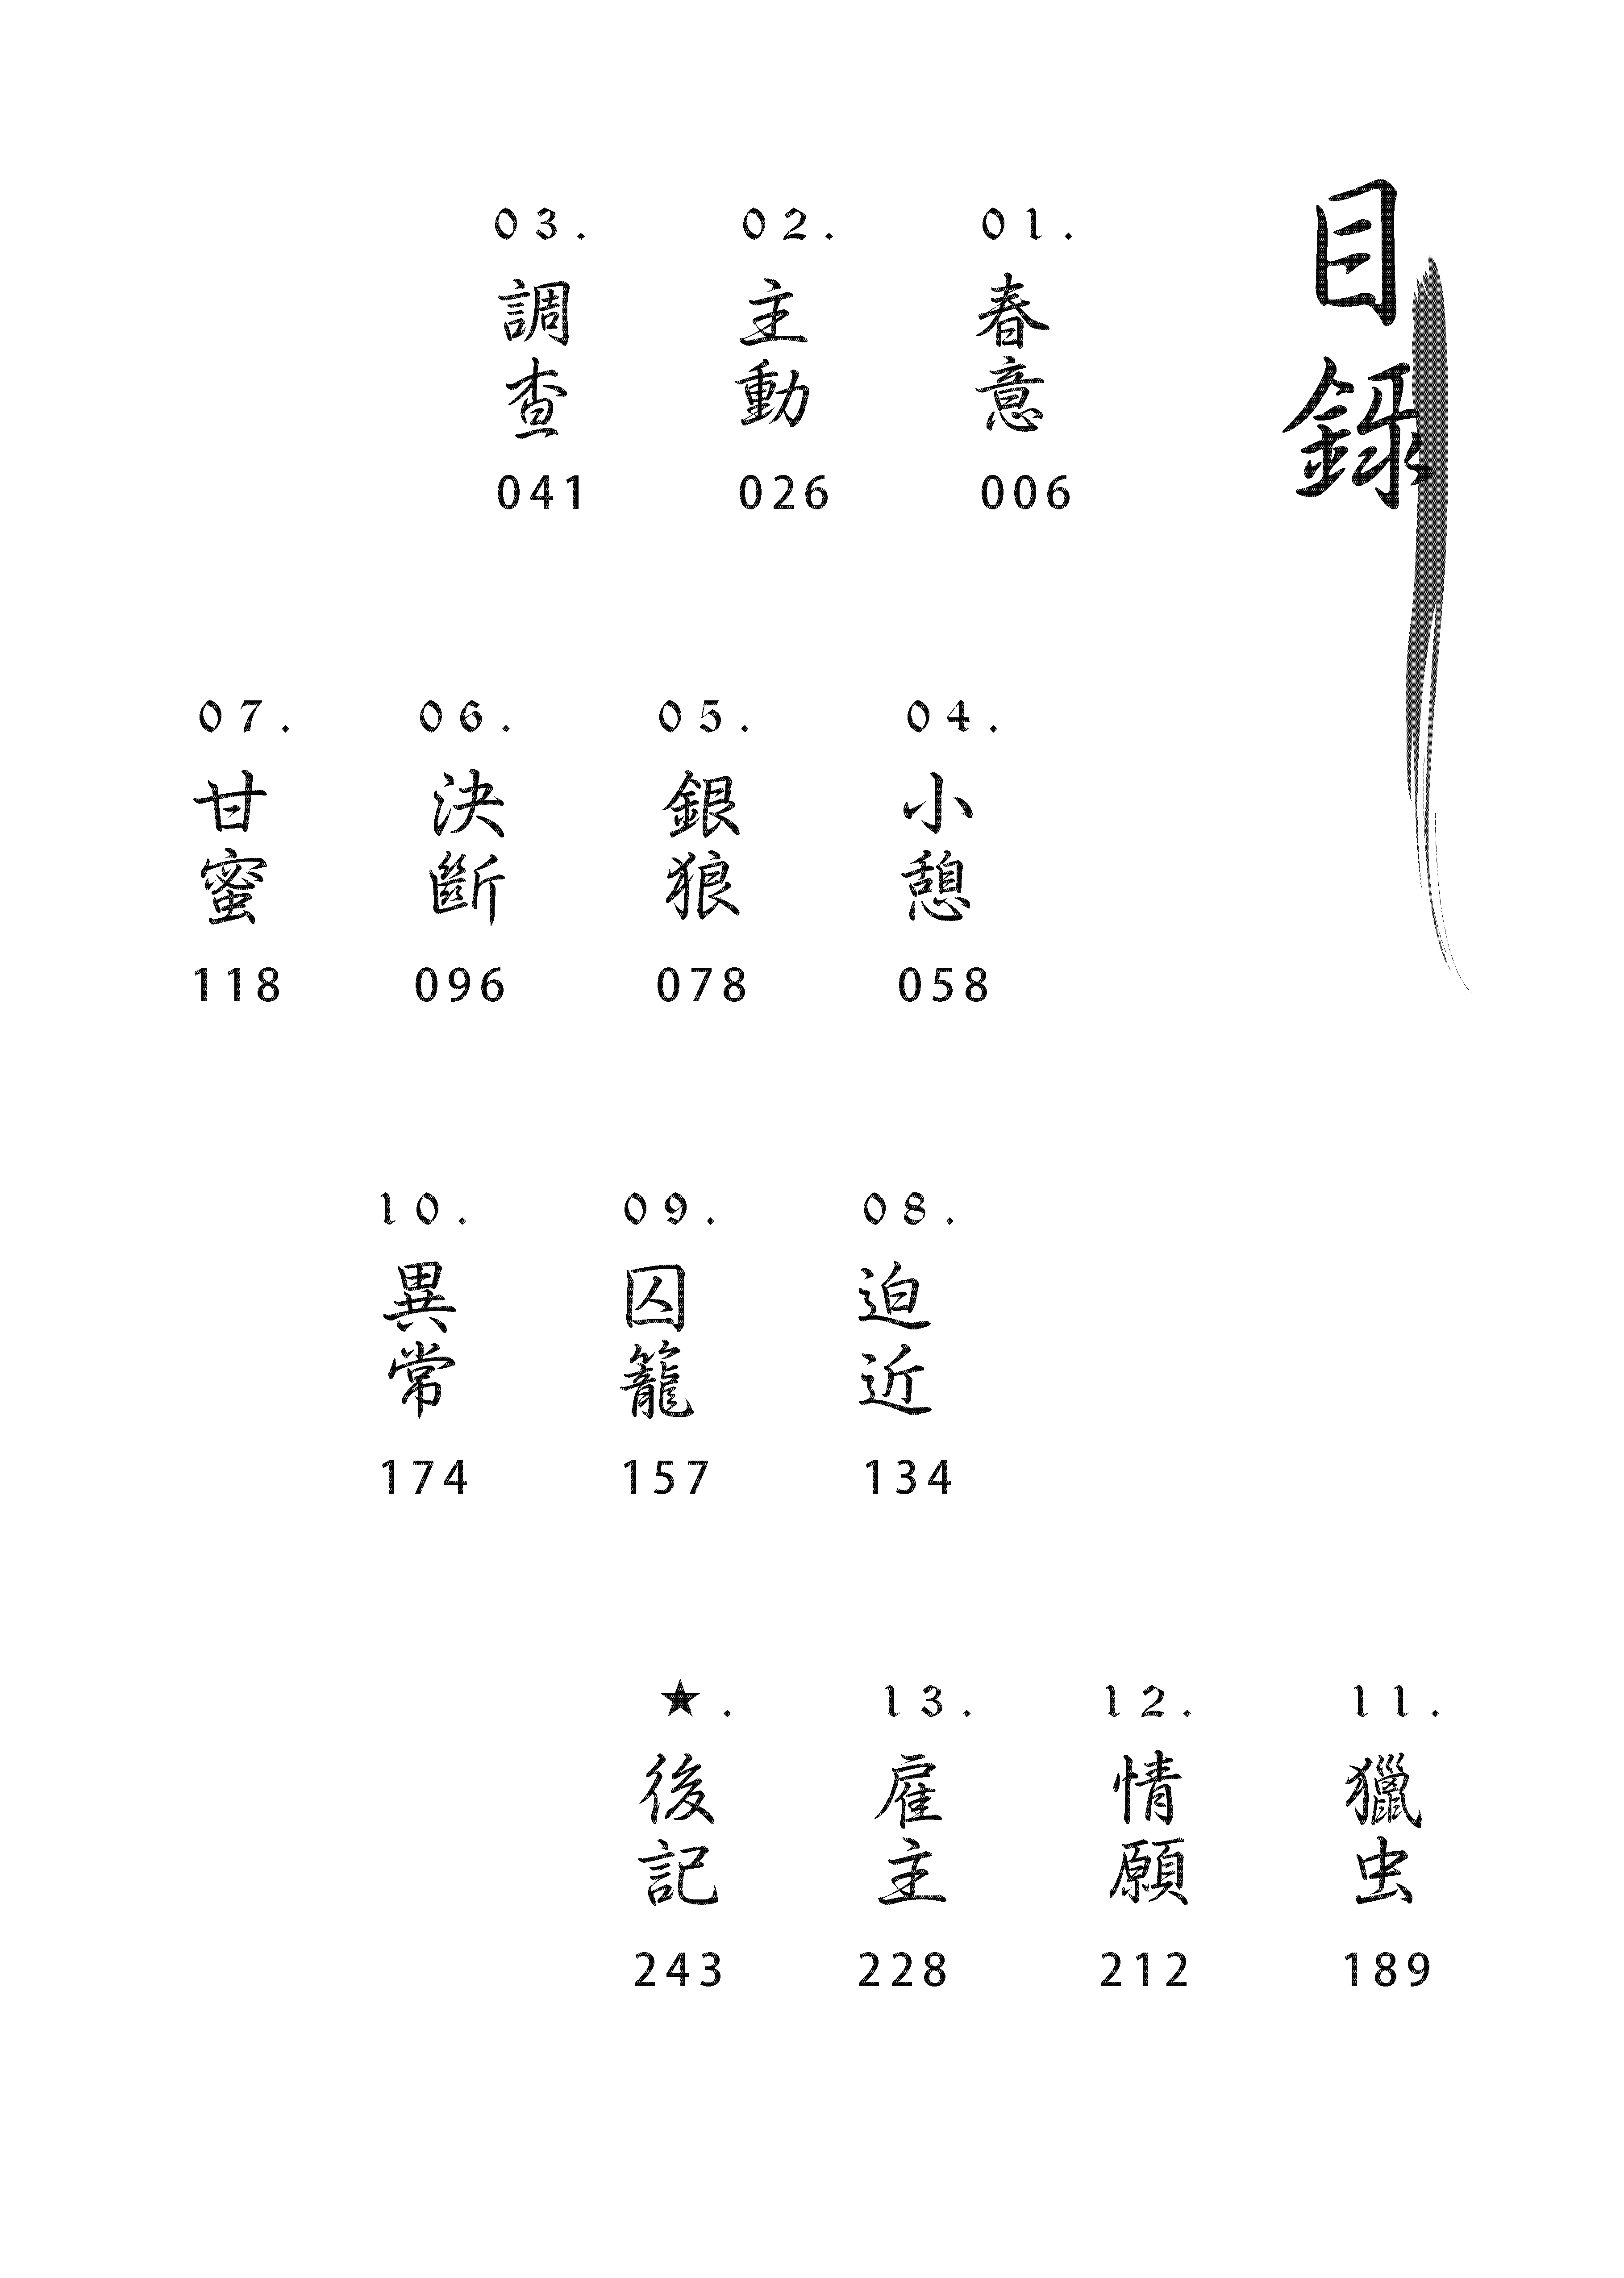 目錄
01.
春意
006
02.
主動
026
03.
調查
041
04.
小憩
058
05.
銀狼
078
06.
決斷
096
07.
甘蜜
118
08.
迫近
134
09.
囚籠
157
10.
異常
174
11.
獵虫
189
12.
情願
212
13.
雇主
228
★.
後記
243